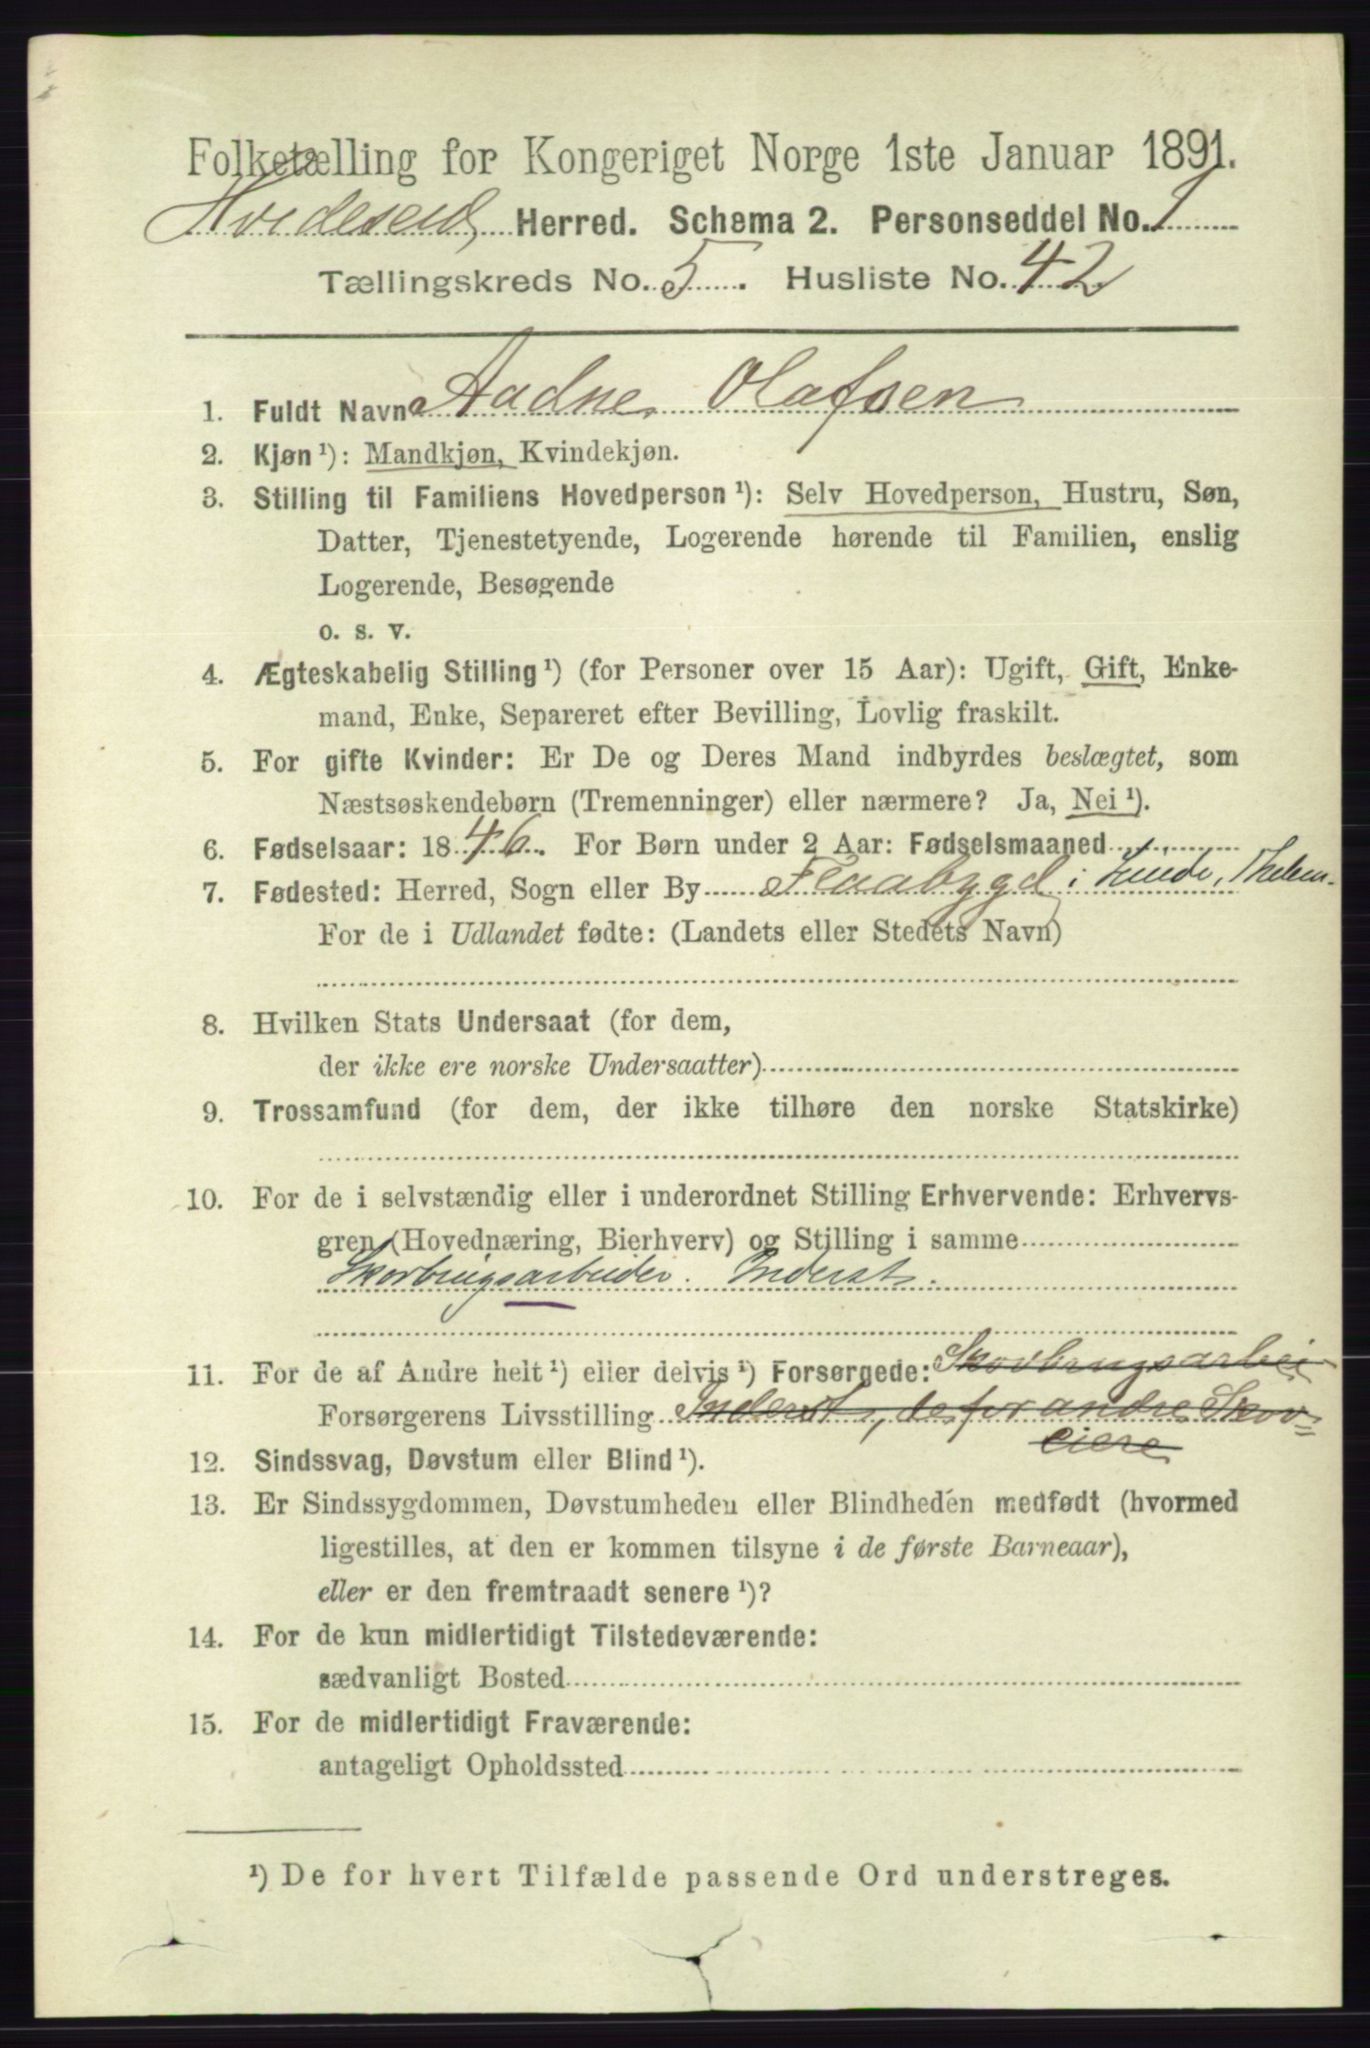 Folketælling for Kongeriget Norge 1ste Januar 1891.
Hvideseid Herred. Schema 2. Personseddel No. 1
Tællingskreds No. 5. Husliste No. 42
1. Fuldt Navn Aadne Olafsen
2. Kjøn¹): Mandkjøn, Kvindekjøn.
3. Stilling til Familiens Hovedperson¹): Selv Hovedperson, Hustru, Søn,
Datter, Tjenestetyende, Logerende hørende til Familien, enslig
Logerende, Besøgende
o. s. v.
4. Ægteskabelig Stilling¹) (for Personer over 15 Aar): Ugift, Gift, Enke-
mand, Enke, Separeret efter Bevilling, Lovlig fraskilt.
5. For gifte Kvinder: Er De og Deres Mand indbyrdes beslægtet, som
Næstsøskendebørn (Tremenninger) eller nærmere? Ja, Nei¹).
6. Fødselsaar: 1846. For Børn under 2 Aar: Fødselsmaaned
7. Fødested: Herred, Sogn eller By Flaabygd i Lunde, Thelem.
For de i Udlandet fødte: (Landets eller Stedets Navn)
8. Hvilken Stats Undersaat (for dem,
der ikke ere norske Undersaatter)
9. Trossamfund (for dem, der ikke tilhøre den norske Statskirke)
10. For de i selvstændig eller i underordnet Stilling Erhvervende: Erhvervs-
gren (Hovednæring, Bierhverv) og Stilling i samme
Skovbrugsarbeider. Inderst.
11. For de af Andre helt¹) eller delvis¹) Forsørgede: Skovbrugsarbei
Forsørgerens Livsstilling Inderst, de for andre Skov=
eiere
12. Sindssvag, Døvstum eller Blind¹).
13. Er Sindssygdommen, Døvstumheden eller Blindheden medfødt (hvormed
ligestilles, at den er kommen tilsyne i de første Barneaar),
eller er den fremtraadt senere¹)?
14. For de kun midlertidigt Tilstedeværende:
sædvanligt Bosted
15. For de midlertidigt Fraværende:
antageligt Opholdssted
¹) De for hvert Tilfælde passende Ord understreges.